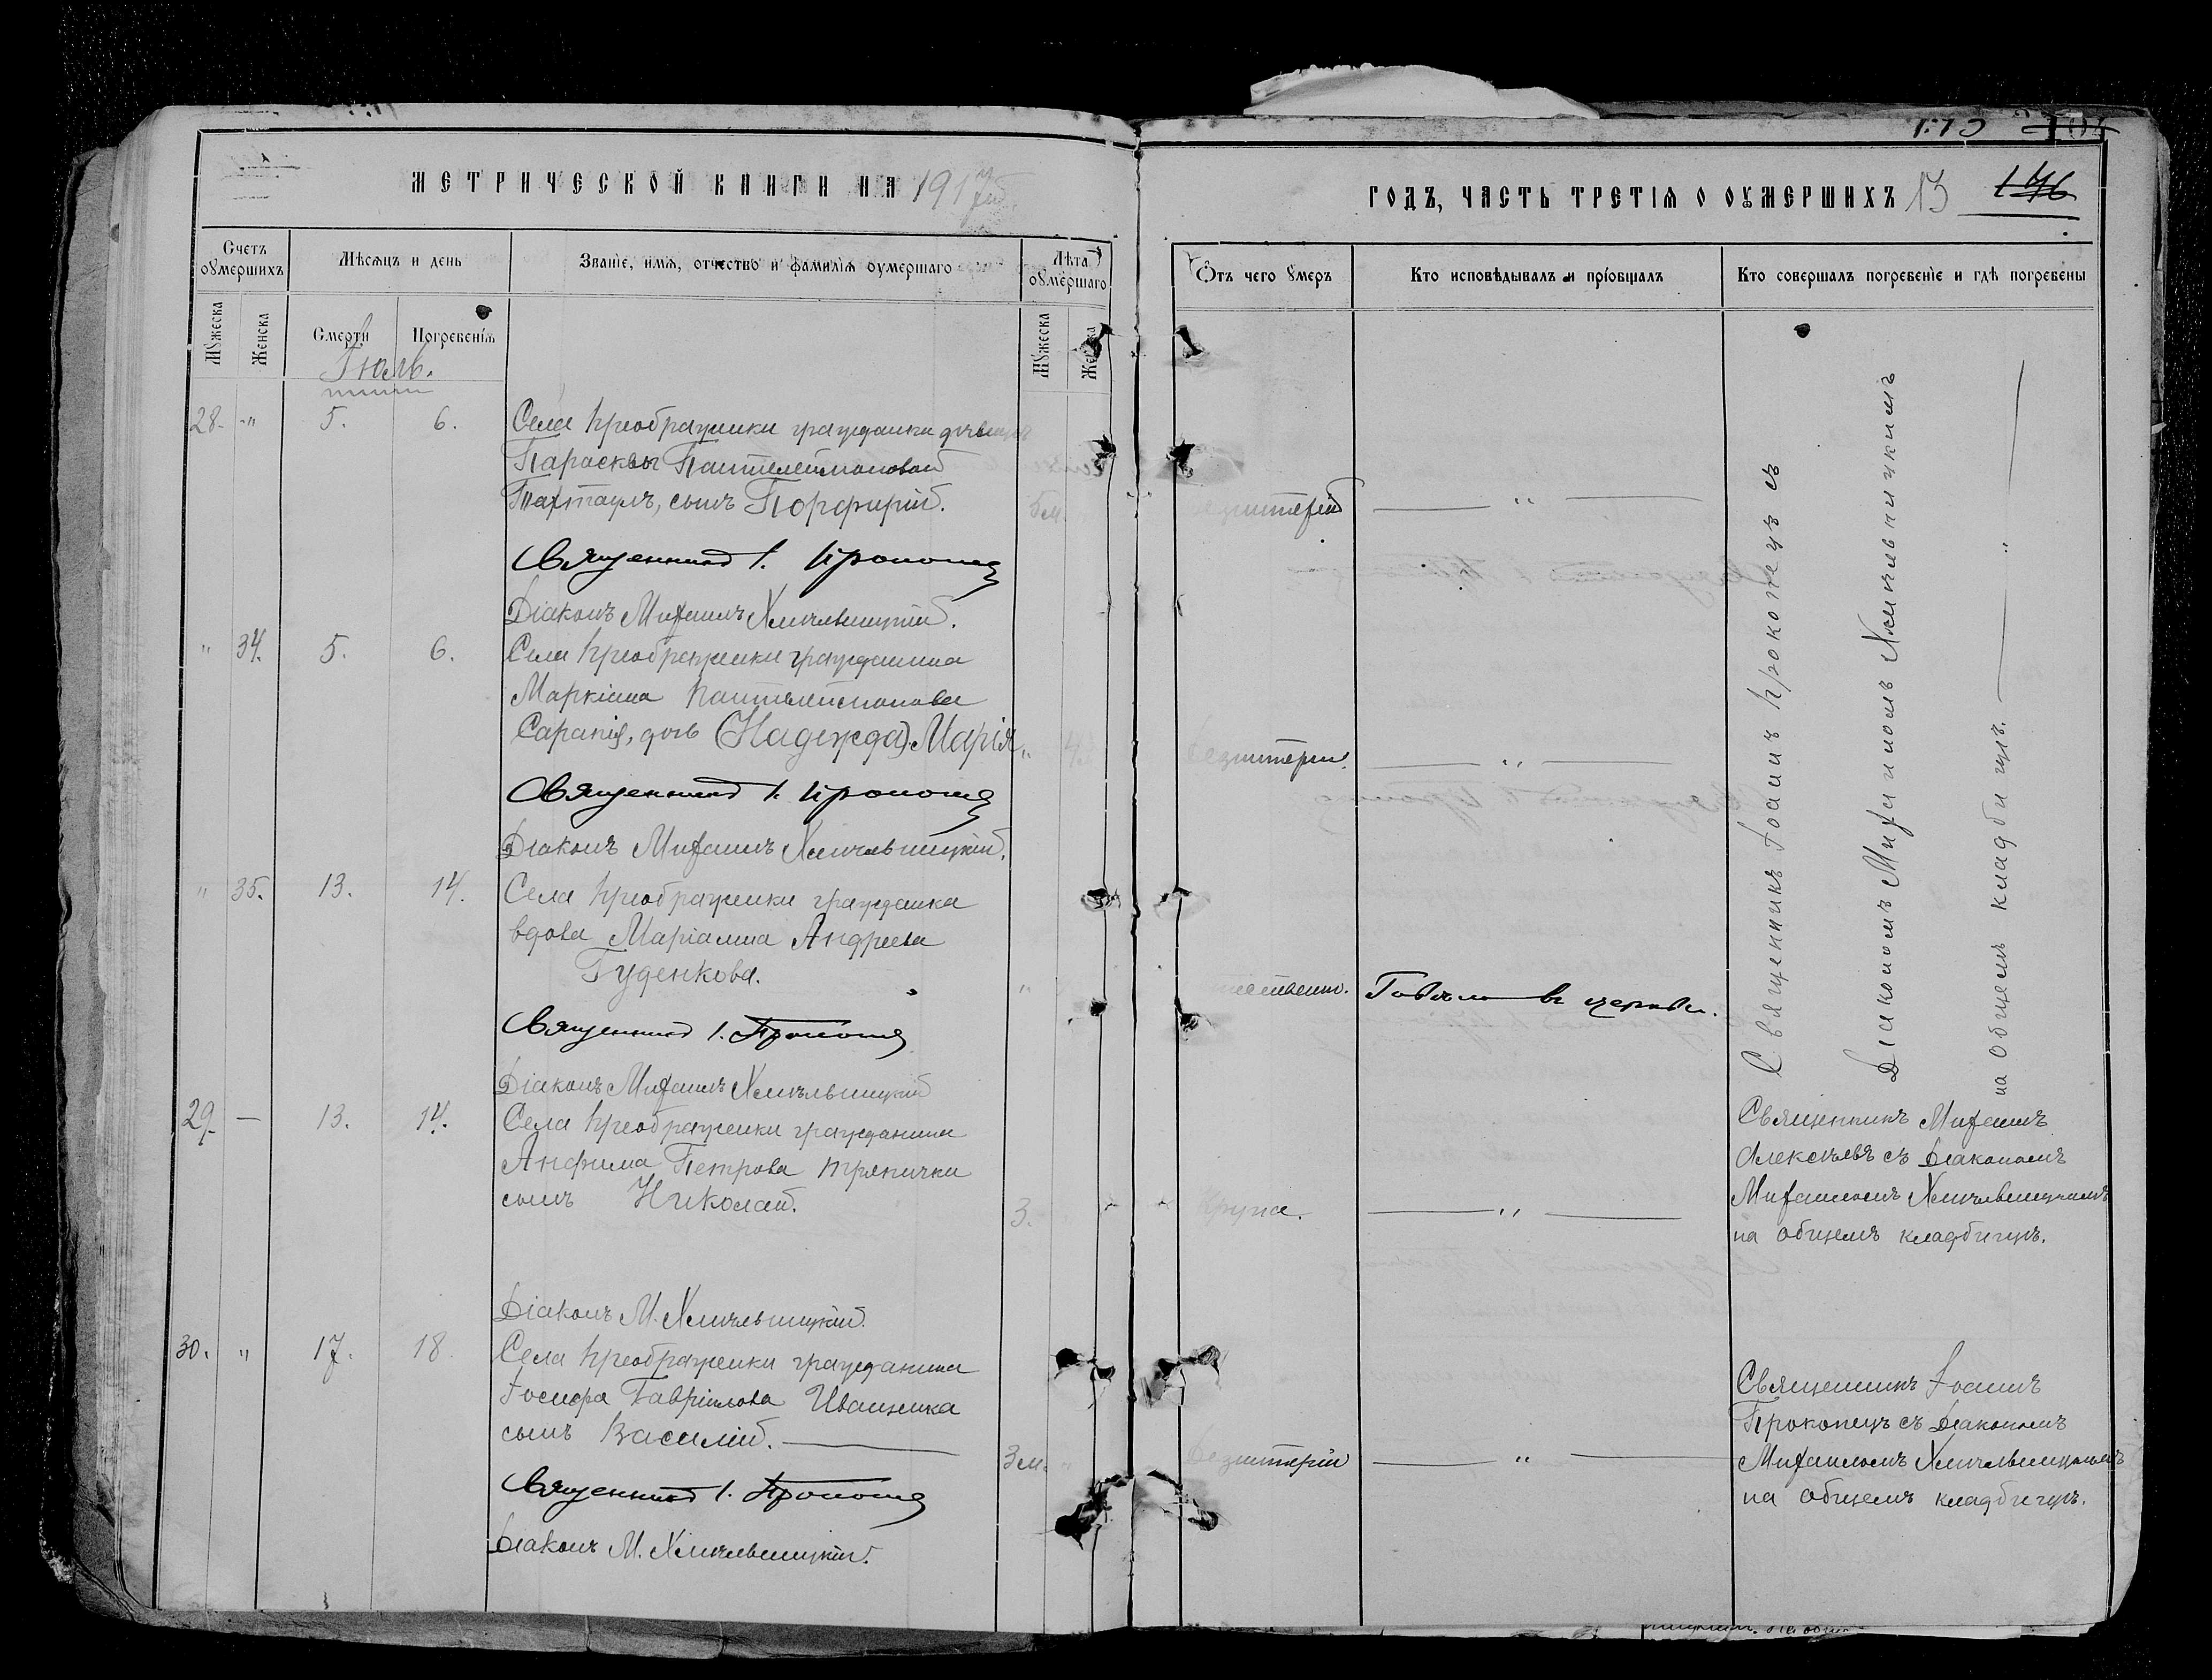 МЕТРИЧЕСКОЙ КНИГИ НА 1917
ГОДЪ, ЧАСТЬ ТРЕТІЯ О ОУМЕРШИХЪ 13
176
Счетъ оумершихъ
Мѣсяцъ и день
Званіе, имя, отчество и фамилія оумершаго
Лѣта оумершаго
Отъ чего умеръ
Кто исповѣдывалъ и пріобщалъ
Кто совершалъ погребеніе и гдѣ погребены
Мужеска
Женска
Смерти
Погребенія
Мужеска
Женска
Іюль.
28. " 5. 6.
Села Преображенки гражданки дѣвицы
Параскевы Пантелеймоновой
Тахтаулъ, сынъ Порфирій.
6 м.
дезинтерій — " —
Священникъ І. Прокопецъ
Діаконъ Михаилъ Хмѣльницкій.
" 34. 5. 6.
Села Преображенки гражданина
Маркіана Пантелеймонова
дочь (Надежда) Марія
дезинтерии. — " —
Священникъ І. Прокопецъ
Діаконъ Михаилъ Хмѣльницкій.
" 35. 13. 14.
Села Преображенки гражданка
вдова Маріамна Андреева
Гуденкова.
Говѣла въ церкви.
Священникъ І. Прокопецъ
Діаконъ Михаилъ Хмѣльницкій
Священникъ Іоаннъ Прокопецъ съ
Діакономъ Михаиломъ Хмѣльницкимъ
на общемъ кладбищѣ. — " —
29. — 13. 14.
Села Преображенки гражданина
Анфима Петрова Трянички
сынъ Николай.
3.
крупа. — " —
Священникъ Михаилъ
Алексѣевъ съ Діакономъ
Михаиломъ Хмѣльницкимъ
на общемъ кладбищѣ.
Діаконъ М. Хмѣльницкій.
30. " 17. 18.
Села Преображенки гражданина
Іосифа Гавріилова Иващенка
сынъ Василій. —
3 м.
дезинтерій — " —
Священникъ Іоаннъ
Прокопецъ съ Діакономъ
Михаиломъ Хмѣльницкимъ
на общемъ кладбищѣ.
Священникъ І. Прокопецъ
Діаконъ М. Хмѣльницкій.